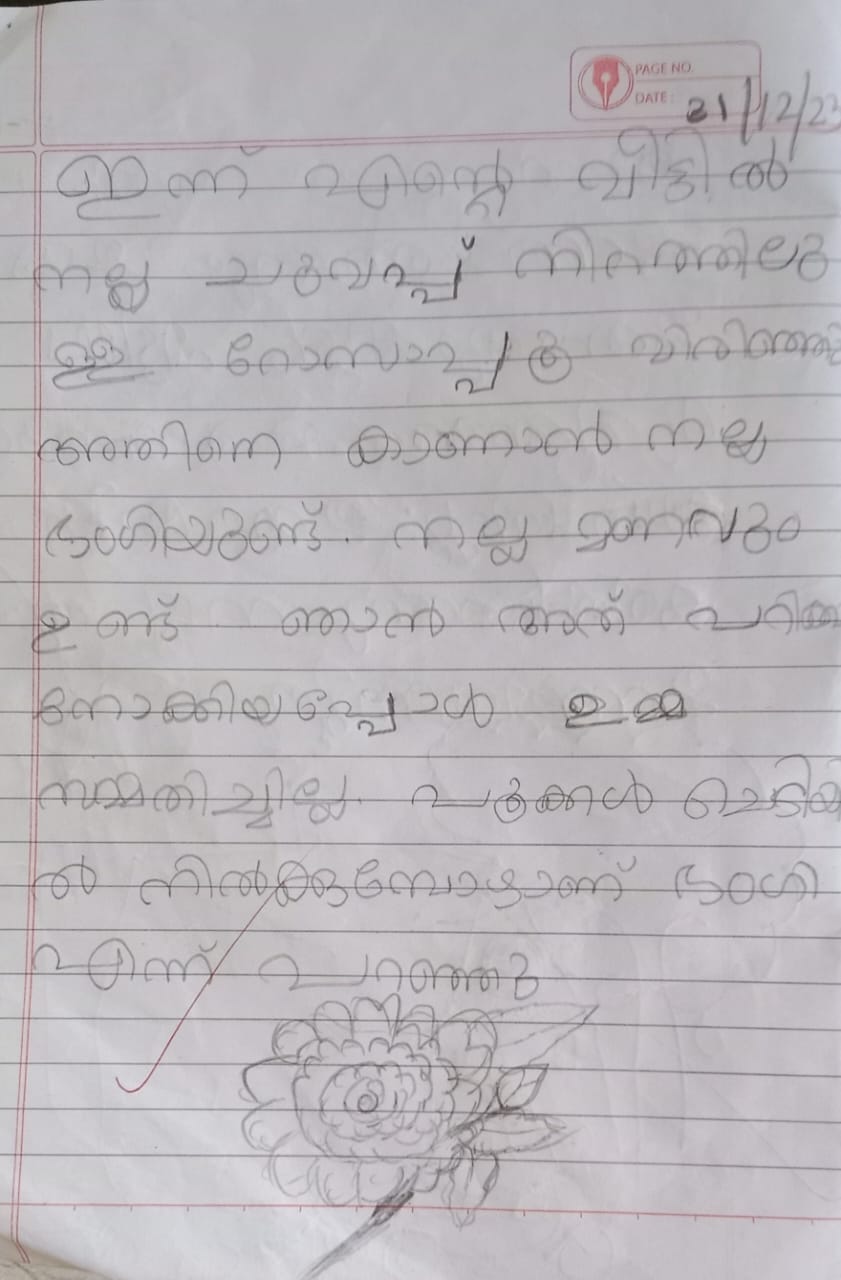 PAGE NO.
DATE: 21/12/23
ഇന്ന് എന്റെ വീട്ടിൽ
നല്ല ചുവപ്പ് നിറത്തിലു
ള്ള റോസാപ്പൂ വിരിഞ്ഞു
അതിനെ കാണാൻ നല്ല
ഭംഗിയുണ്ട്. നല്ല മണവും
ഉണ്ട് ഞാൻ അത് പറിക്ക
നോക്കിയപ്പോൾ ഉമ്മ
സമ്മതിച്ചില്ല. പൂക്കൾ ചെടിയി
ൽ നിൽക്കുമ്പോഴാണ് ഭംഗി
എന്ന് പറഞ്ഞു